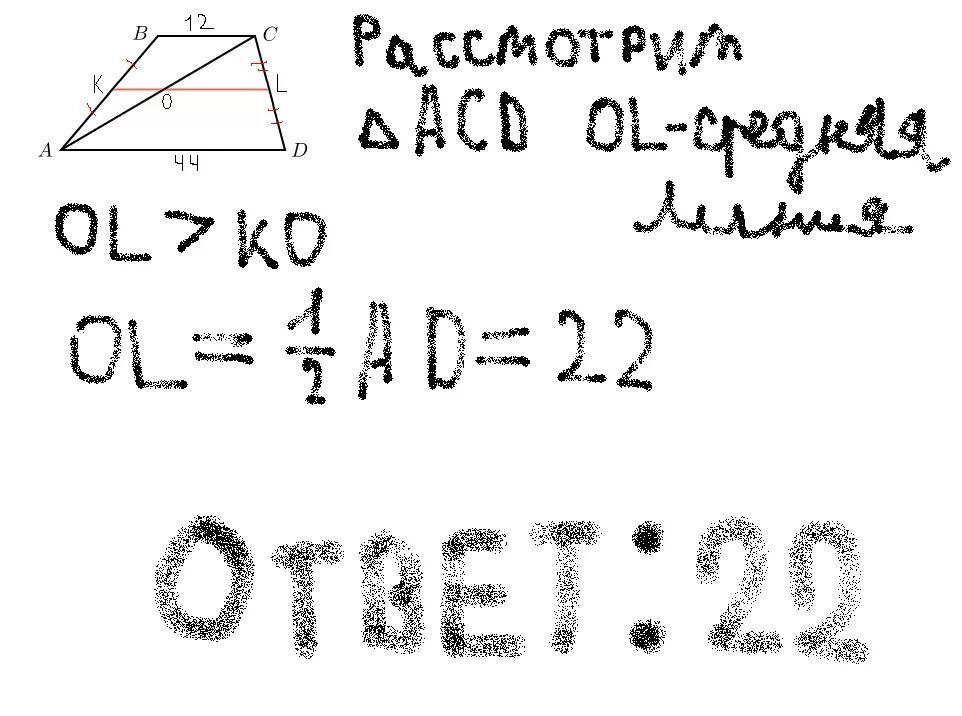 12
B C
K L
O
A D
44
Рассмотрим
△ACD OL-средняя
линия
OL > KO
OL = 1/2 AD = 22
Ответ: 22